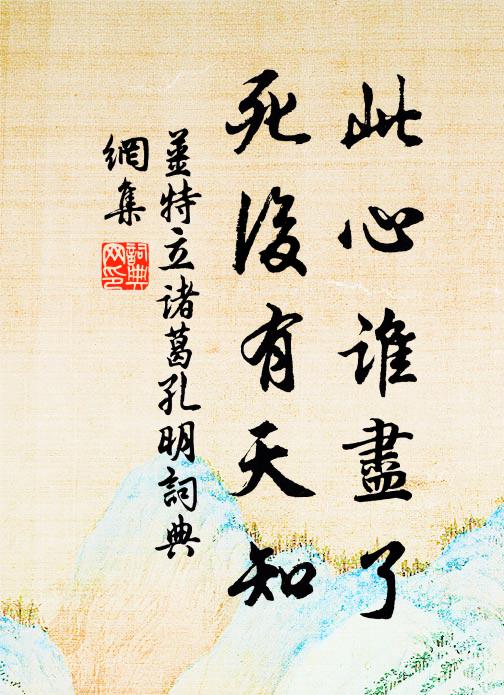 此心誰盡了
死後有天知
姜特立諸葛孔明詞典
網集
詞典
网印